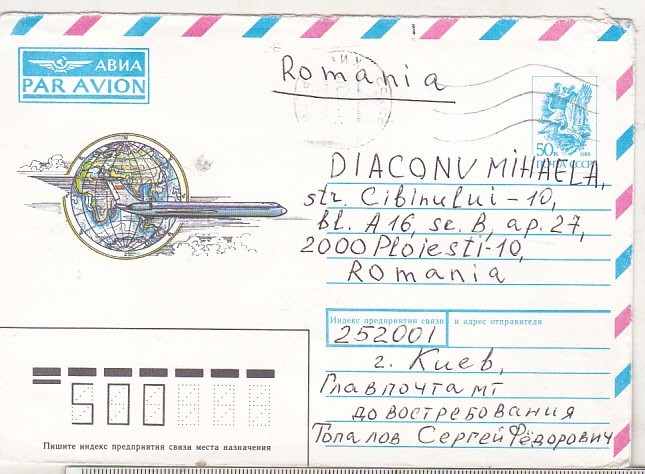 АВИА
PAR AVION
Romania
50к
1988
ПОЧТА СССР
DIACONU MIHAELA,
str. Cibinului-10,
bl. A16, sc. B, ap. 27,
2000 Ploiesti-10,
Romania
Индекс предприятия связи и адрес отправителя
252001
г. Киев,
Главпочтамт
до востребования
Топалов Сергей Фёдорович
500
Пишите индекс предприятия связи места назначения